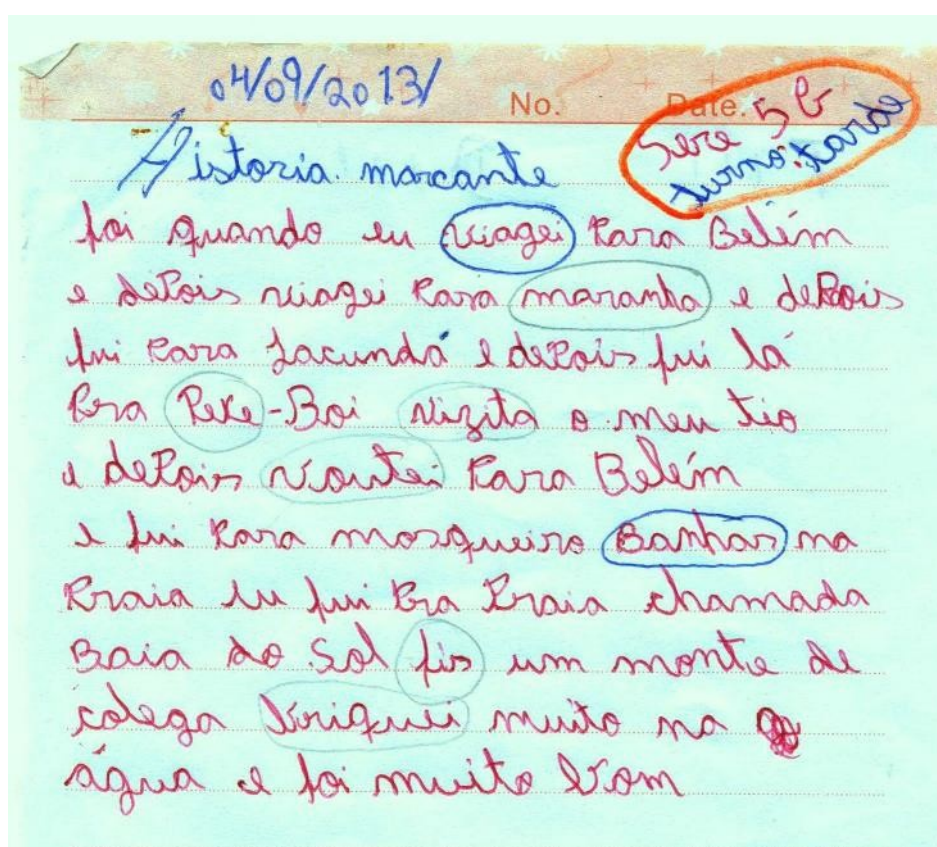 04/09/2013/
No. Date.
Sere 5 B
turno: tarde
Historia marcante
foi quando eu viagei para Belém
e depois viagei para maranha e depois
fui para Jacundá e depois fui lá
pra Pexe-Boi vizita o meu tio
e depois voutei para Belém
e fui para mosqueiro Banhar na
Praia eu fui pra Praia chamada
Baia do Sol fis um monte de
colega briquei muito na
água e foi muito bom